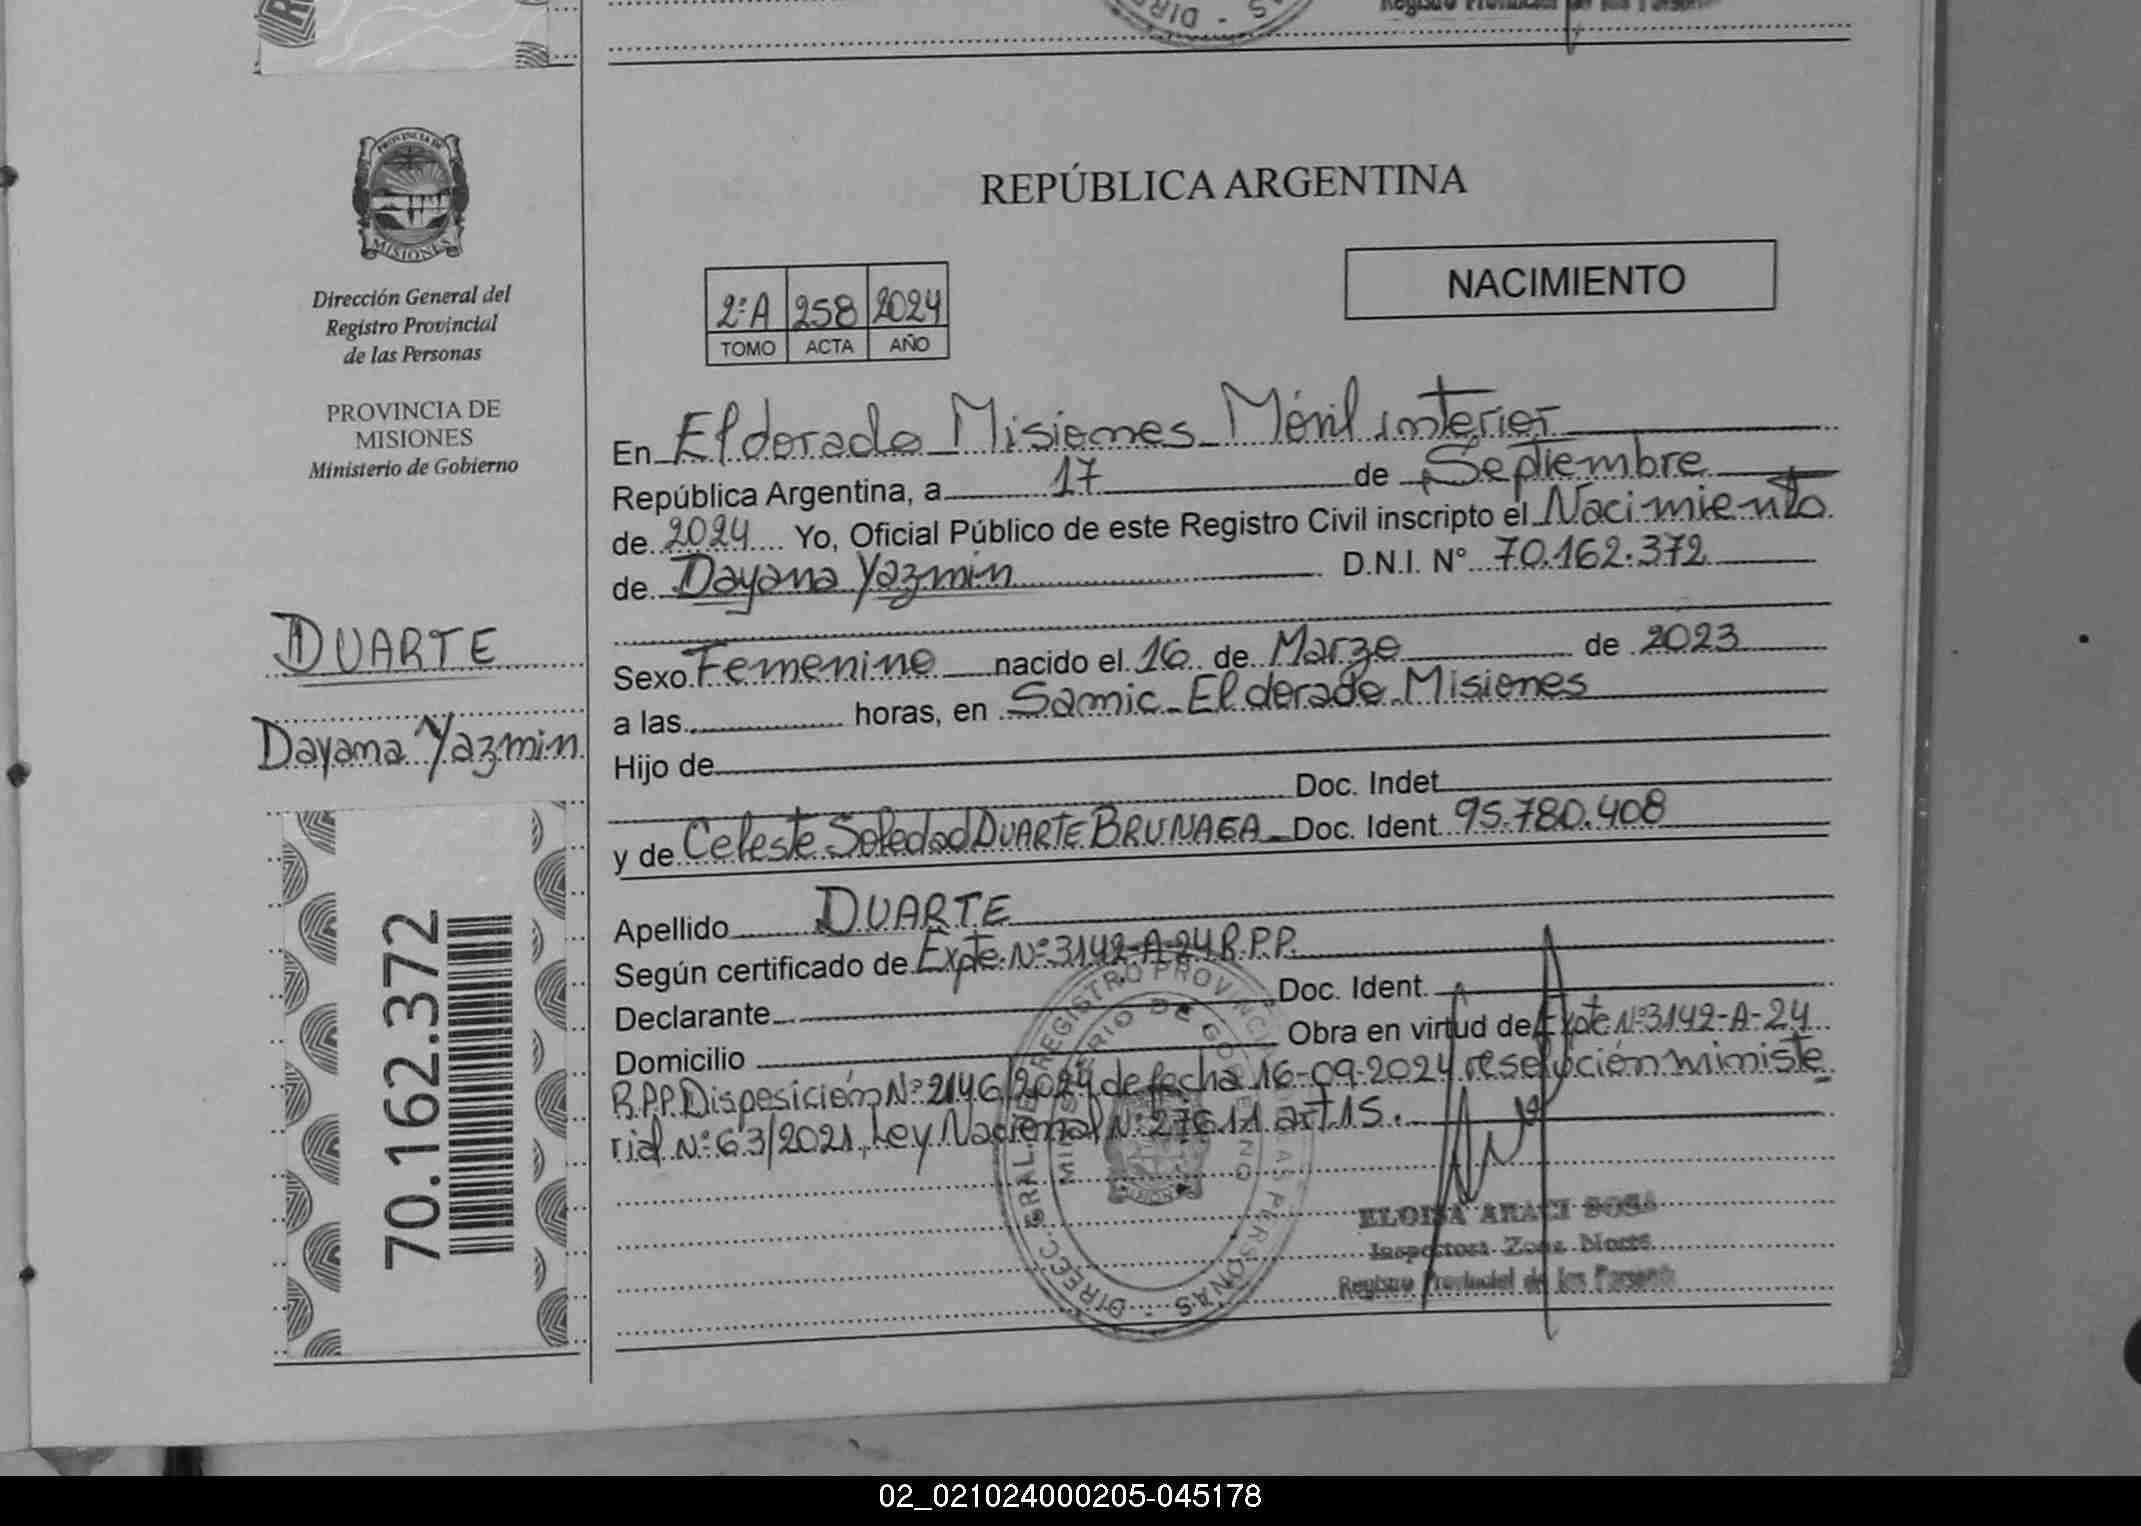 PROVINCIA DE
MISIONES
Dirección General del
Registro Provincial
de las Personas
PROVINCIA DE
MISIONES
Ministerio de Gobierno
DUARTE
Dayana Yazmin
70.162.372
REPÚBLICA ARGENTINA
NACIMIENTO
2ºA 258 2024
TOMO ACTA AÑO
En Eldorado Misiones Móvil interior
República Argentina, a 17 de Septiembre
de 2024 Yo, Oficial Público de este Registro Civil inscripto el Nacimiento
de Dayana Yazmin D.N.I. N° 70.162.372
Sexo Femenino nacido el 16 de Marzo de 2023
a las horas, en Samic - Eldorado Misiones
Hijo de
Doc. Indet.
y de Celeste Soledad DUARTE BRUNAGA Doc. Ident. 95.780.408
Apellido DUARTE
Según certificado de Expte. Nº 3142-A-24 R.P.P.
Declarante Doc. Ident.
Domicilio Obra en virtud de Expte Nº 3142-A-24
R.P.P. Disposición Nº 2146/2024 de fecha 16-09-2024 resolución ministe
rial Nº 63/2021, Ley Nacional Nº 27611 art. 15.
DIREC. GRAL. DE REGISTRO PROVINCIAL DE LAS PERSONAS
MINISTERIO DE GOBIERNO
ELOISA ARACI SOSA
Inspectora Zona Norte
Registro Provincial de las Personas
02_021024000205-045178